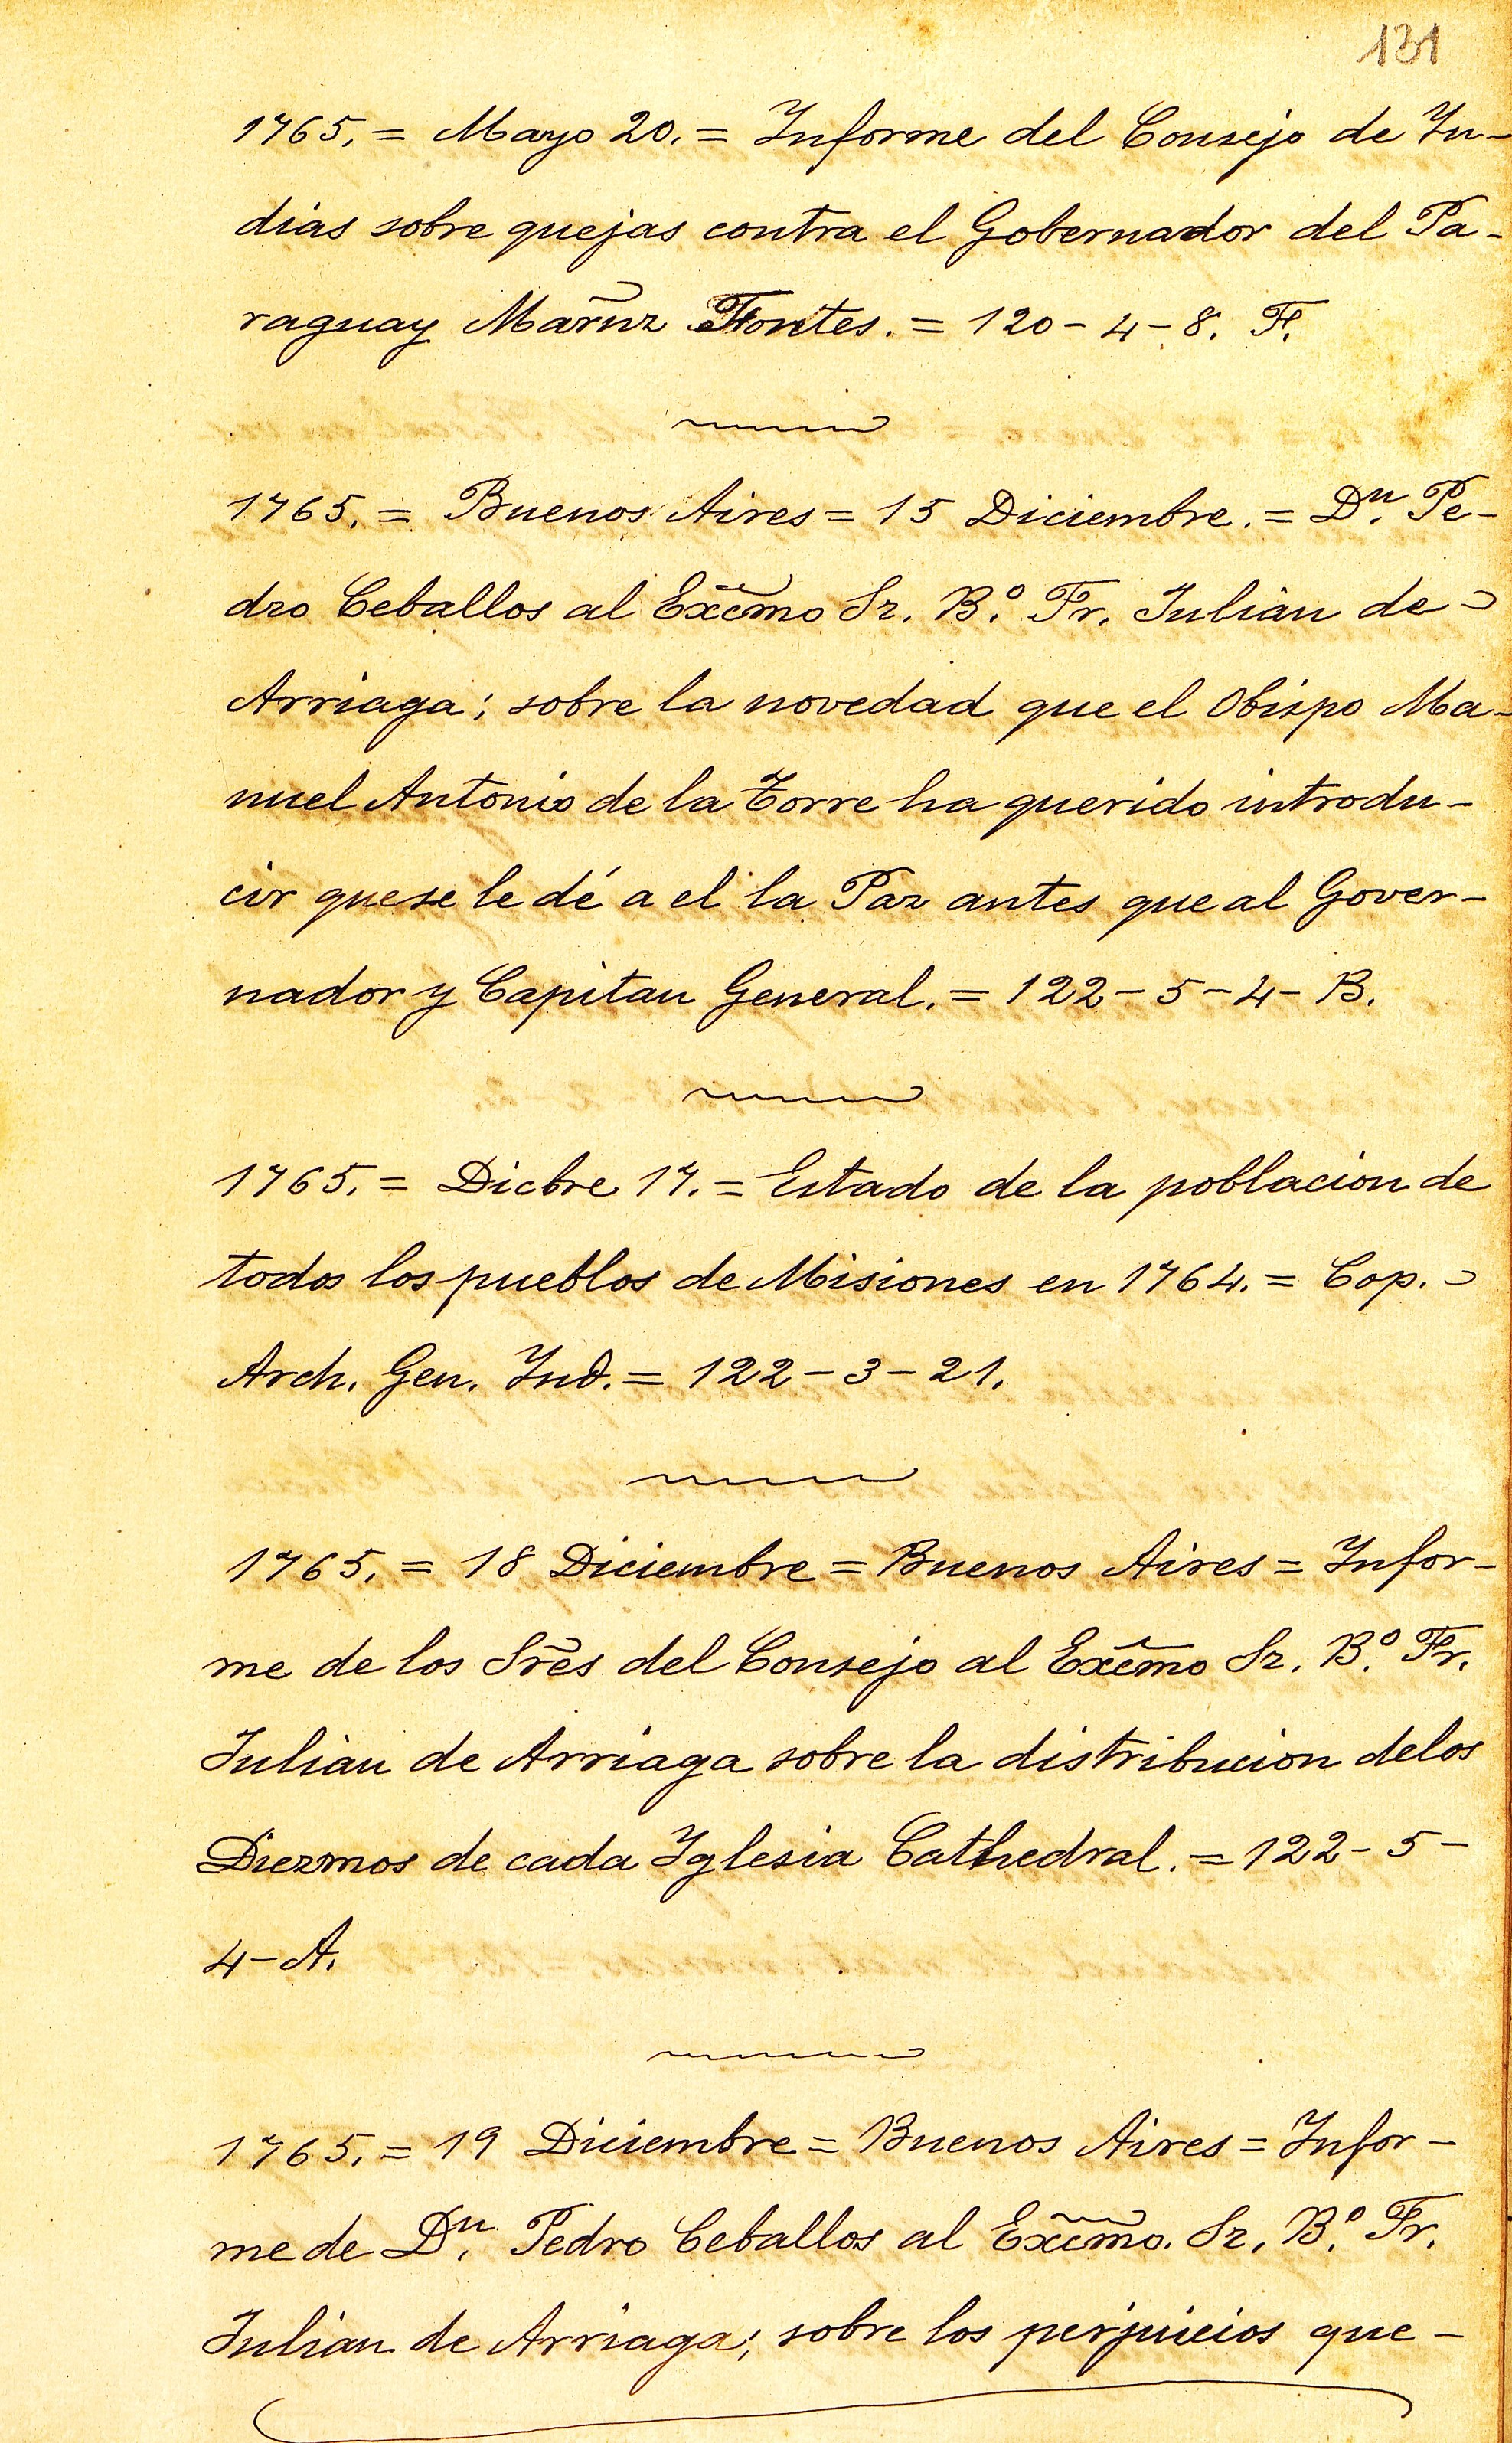 131
1765. = Mayo 20. = Informe del Consejo de In-
dias sobre quejas contra el Gobernador del Pa-
raguay Marñz Fontes. = 120-4-8. F.
1765. = Buenos Aires = 15 Diciembre. = Dn. Pe-
dro Ceballos al Excmo Sr. B.º Fr. Julian de
Arriaga; sobre la novedad que el Obispo Ma-
nuel Antonio de la Torre ha querido introdu-
cir que se le dé a el la Paz antes que al Gover-
nador y Capitan General. = 122-5-4-B.
1765. = Dicbre 17. = Estado de la poblacion de
todos los pueblos de Misiones en 1764. = Cop.
Arch. Gen. Ind. = 122-3-21.
1765. = 18 Diciembre = Buenos Aires = Infor-
me de los Sres del Consejo al Excmo Sr. B.º Fr.
Julian de Arriaga sobre la distribucion delos
Diezmos de cada Iglesia Cathedral. = 122-5-
4-A.
1765. = 19 Diciembre = Buenos Aires = Infor-
me de Dn. Pedro Ceballos al Excmo. Sr. B.º Fr.
Julian de Arriaga; sobre los perjuicios que-